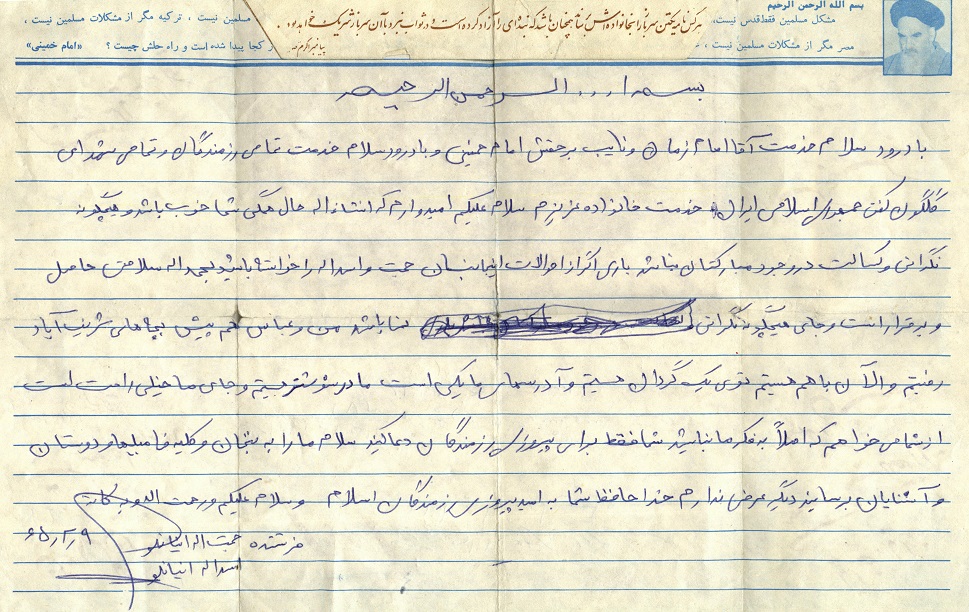 بسم الله الرحمن الرحیم
مشکل مسلمین فقط قدس نیست،
مسلمین نیست ، ترکیه مگر از مشکلات
مصر مگر از مشکلات مسلمین نیست ،
از کجا پیدا شده است و راه حلش چیست ؟ «امام خمینی»
بسمه ا... الرحمن الرحیم
با درود سلام خدمت آقا امام زمان و نایب برحقش امام خمینی و با درود سلام خدمت تمامی رزمندگان و تمامی شهدای
گلگون کفن جمهوری اسلامی ایران خدمت خانواده عزیزم سلام علیکم امیدوارم که انشاءاله حال همگی شما خوب باشد و هیچگونه
نگرانی و کسالت در وجود مبارکتان نباشد باری اگر از احوالات اینجانبان حجت و اسداله را خواسته باشید بحمداله سلامتی حاصل
و برقرار است و جای هیچگونه نگرانی نمیباشد من و عباس هم پیش بچه‌های شریف آباد
رفتیم و الآن با هم هستیم توی یک گردان هستیم و آدرسمان با یکی است ما در شوشتر هستیم و جای ما خیلی راحت است
از شما می خواهم که اصلاً به فکر ما نباشید شما فقط برای پیروزی رزمندگان دعا کنید سلام ما را به بچه‌ها و کلیه فامیلها و دوستان
و آشنایان برسانید دیگر عرضی ندارم خداحافظ شما به امید پیروزی رزمندگان اسلام و سلام علیکم ورحمت اله وبرکاته
فرستنده حجت اله
۶۵٫۲٫۹
اسداله